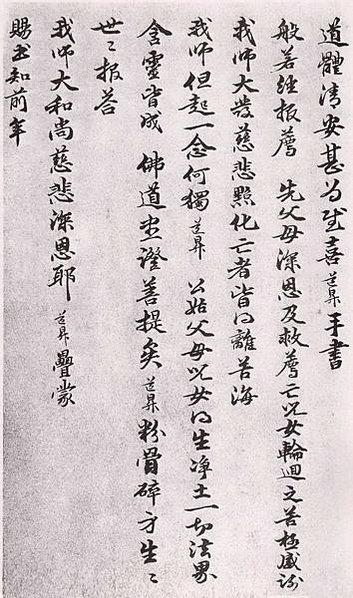 道體清安甚為至喜道昇手書
般若經報薦 先父母深恩及救薦亡兒女輪迴之苦極感謝
我師大發慈悲點化亡者皆得離苦海
我師但起一念何獨道昇 公姑父母兒女得生淨土一切法界
含靈皆成 佛道坐證菩提矣道昇粉骨碎身生〻
世〻報答
我師大和尚慈悲深恩耶道昇疊蒙
賜書知前年